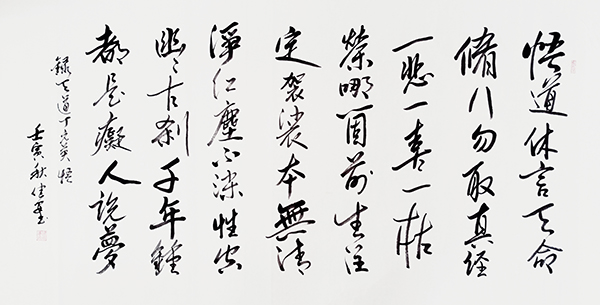 悟道休言天命
脩行勿取真经
一悲一喜一枯
榮哪個前生注
定袈裟本無清
淨红塵不染性空
幽々古刹千年鐘
都是癡人说夢
錄天道丁元英悟
壬寅秋佳書